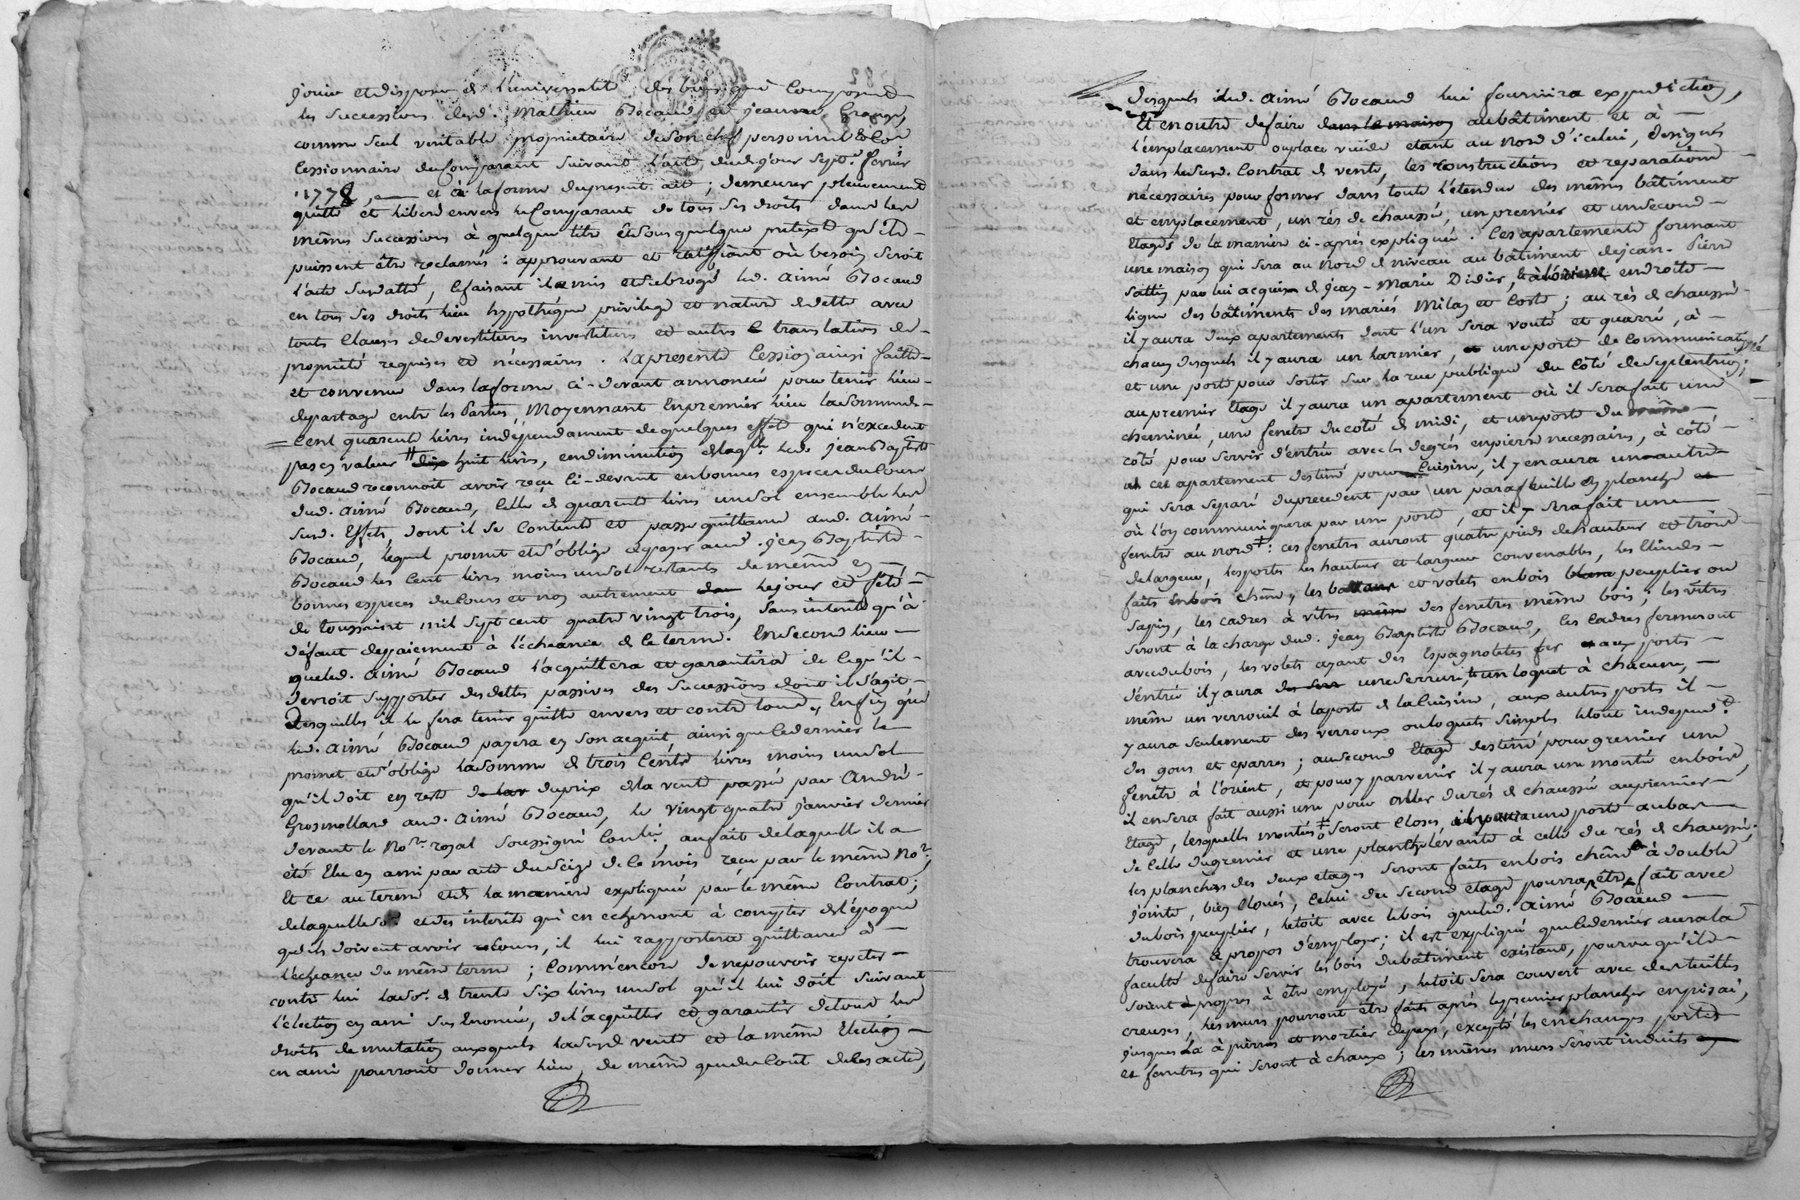 jouir et disposer de l'universalité des biens qui composent
les successions desd. Mathieu Bocaud et jeanne
comme seul veritable proprietaire de son chef personnel &
Cessionnaire du Comparant suivant l'acte dud. jour sept.e fevrier
1778, et à la forme du present act; demeurer pleinement
quitte et liberé envers le Comparant de tous ses droits dans les
mêmes successions à quelque titre et sous quelque pretexte qu'ils
puissent être reclamés: approuvant et ratiffiant où besoin seroit
l'acte sus datté, le faisant il a mis et subrogé led. aimé Bocaud
en tous ses droits lieu hypothèque privilege et nature de dette avec
touts Clauses de devestiture investiture et autres translatives de
propriété requises et nécessaires. La presente Cession ainsi faitte
et convenue dans la forme ci-devant annoncée pour tenir lieu
de partage entre les Parties, Moyennant en premier lieu la somme de
Cent quarente livres indépendament de quelques effets qui n'excedent
pas en valeur dix huit livres, en diminution de laq.lle led. jean Baptiste
Bocaud reconnoit avoir reçu ci-devant en bonnes especes du Cours
dud. aimé Bocaud, Celle de quarente livres un sol ensemble les
susd. Effets, dont il se Contente et passe quittance aud. aimé
Bocaud, lequel promet et s'oblige de payer aud. jean Baptiste
Bocaud les Cent livres moins un sol restants de même en
bonnes especes du Cours et non autrement le jour et fête
de toussaint mil sept cent quatre vingt trois, sans interêt qu'à
défaut de paiement à l'écheance de ce terme. En second lieu
que led. aimé Bocaud l'acquittera et garantira de ce qu'il
devroit supporter des dettes passives des successions dont il s'agit
Desquelles il le fera tenir quitte envers et contre tous. Enfin que
led. aimé Bocaud payera en son acquit ainsi que ce dernier le
promet et s'oblige la somme de trois Cents livres moins un sol
qu'il doit en reste du prix de la vente passée par André
Grosmollard aud. aimé Bocaud, le vingt quatre janvier dernier
devant le No.re royal soussigné Con.er au fait de laquelle il a
été Elu en ami par acte du seize de ce mois reçu par le même No.re
Et ce au terme et de la maniere expliquée par le même Contrat;
de laquelle so.e et des interêts qui en echerront à compter de l'époque
qu'ils doivent avoir cours, il lui rapportera quittance à
l'écheance du même terme; Comm'encore de ne pouvoir repeter
contre lui la so.e de trente six livres un sol qu'il lui doit suivant
l'élection en ami sus énoncée, de l'acquitter et garantir de tous les
droits de mutation auxquels la susd. vente et la même Election
en ami pourront donner lieu, de même que du Coût de les actes,
Desquels led. aimé Bocaud lui fournira expedition,
Et en outre de faire dans la maison au bâtiment et à
l'emplacement ou place vuide etant au nord d'icelui, designés
dans le susd. Contrat de vente, les constructions et reparations
nécessaires pour former dans toute l'étendue des mêmes bâtiment
et emplacement, un rés de chaussé, un premier et un second
Etages de la maniere ci-après expliquée. Les apartements formant
une maison qui sera au nord de niveau au bâtiment de jean-Pierre
par lui acquis de jean-Marie Didier, endroite
ligne des bâtiments des mariés Milan et Coste; au rés de chaussé
il y aura deux apartements dont l'un sera vouté et quarré, à
chacun desquels il y aura un larmier, une porte de communication
et une porte pour sortir sur la rue publique du côté de septentrion;
au premier Etage il y aura un apartement où il sera fait une
cheminée, une fenetre du coté de midi, et une porte du même
côté pour servir d'entrée avec les degrés en pierre necessaires, à côté
de cet apartement destiné pour Cuisine, il y en aura un autre
qui sera separé du precedent par un parafeuille en planche
où l'on communiquera par une porte, et il y sera fait une
fenetre au nord: ces fenetres auront quatre pieds de hauteur et trois
de largeur, les portes les hauteur et largeur convenables, les
faits en bois chêne, les et volets en bois peuplier ou
sapin, les cadres à vitre des fenetres même bois; les vitres
seront à la charge dud. jean Baptiste Bocaud, les Cadres fermeront
avec du bois, les volets ayant des Espagnolettes fer aux portes
d'entrée il y aura une serrure, & un loquet à chacune,
même un verrouil à la porte de la Cuisine, aux autres portes il
y aura seulement des verroux ou loquets simples le tout independ.t
des gons et eparres; au second Etage destiné pour grenier une
fenêtre à l'orient, et pour y parvenir il y aura une montée en bois,
il en sera fait aussi une pour aller du rés de chaussé au premier
Etage, lesquelles montées seront closes une porte au bas
de Celle du grenier et une planche levante à celle du rés de chaussé;
les planchers des deux etages seront faits en bois chêne à double
jointe, bien cloués, Celui du second etage pourra être fait avec
du bois peuplier, le toit avec le bois que led. aimé Bocaud
trouvera à propos d'employer; il est expliqué que ce dernier aura la
faculté de faire servir les bois du bâtiment existant, pourvu qu'ils
soient propres à être employé, le toit sera couvert avec des tuilles
creuses, les murs pourront être faits après le premier plancher en pizai,
jusques là à pierres et mortier de pays, excepté les enchamps portes
et fenetres qui seront à chaux; les mêmes murs seront enduits